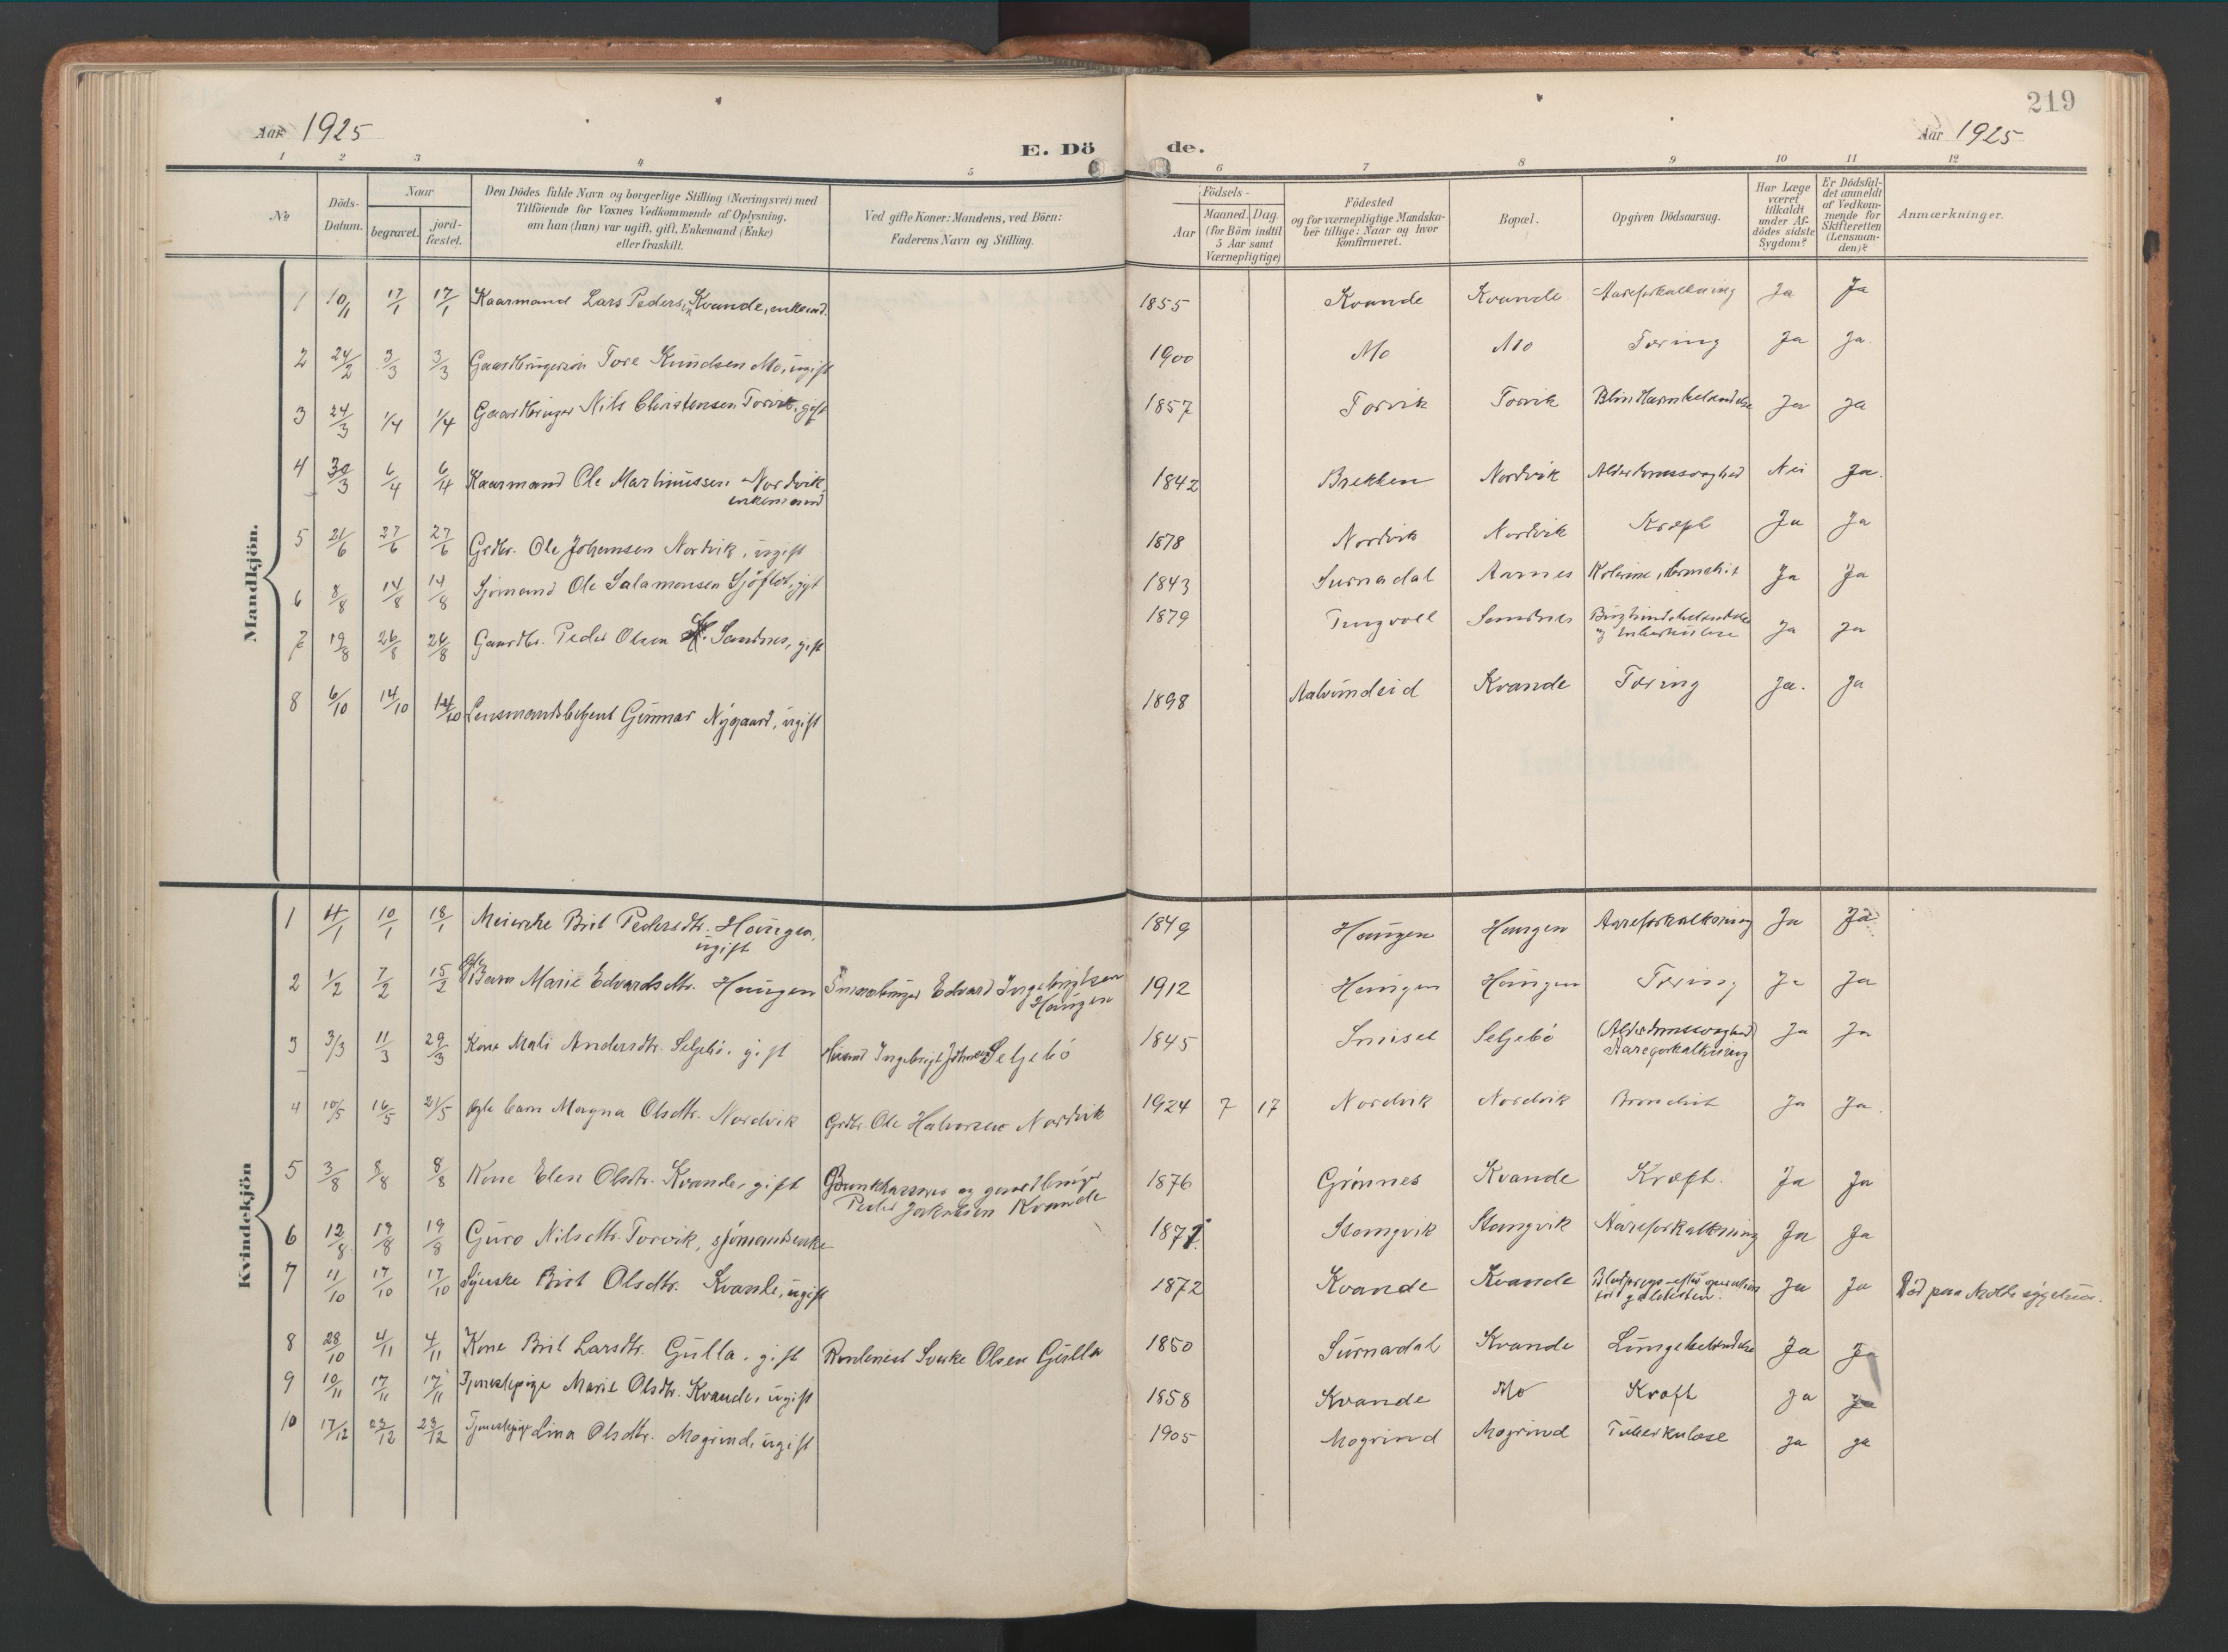 219
Aar 1925
Aar 1925
E. Dö de.
1 2 3 4 5 6 7 8 9 10 11 12
No
Döds-Datum.
Naar
begravet.
jord-fæstet.
Den Dödes fulde Navn og borgerlige Stilling (Næringsvei) med
Tilföiende for Voxnes Vedkommende af Oplysning,
om han (hun) var ugift, gift, Enkemand (Enke)
eller fraskilt.
Ved gifte Koner: Mandens, ved Börn:
Faderens Navn og Stilling.
Födsels-
Aar
Maaned. Dag.
(for Börn indtil
5 Aar samt
Værnepligtige)
Födested
og for værnepligtige Mandska-
ber tillige: Naar og hvor
konfirmeret.
Bopæl.
Opgiven Dödsaarsag.
Har Læge
været
tilkaldt
under Af-
dödes sidste
Sygdom?
Er Dödsfal-
det anmeldt
af Vedkom-
mende for
Skifteretten
(Lensman-
den)?
Anmærkninger.
Mandkjön.
1 10/1 17/1 17/1 Kaarmand Lars Pedersen Kvande, enkemd. 1855 Kvande Kvande Aareforkalkning Ja Ja
2 24/2 3/3 3/3 Gaardbrugersön Tore Knudsen Mo, ugift 1900 Mo Mo Tæring Ja Ja
3 24/3 1/4 1/4 Gaardbruger Nils Christensen Torvik, gift 1857 Torvik Torvik Blindtarmbetændelse Ja Ja
4 30/3 6/4 6/4 Kaarmand Ole Martinussen Nordvik, 1842 Brekken Nordvik Alderdomssvaghed Nei Ja.
enkemand
5 21/6 27/6 27/6 Grdbr. Ole Johansen Nordvik, ugift 1878 Nordvik Nordvik Kræft Ja Ja
6 8/8 14/8 14/8 Sjömand Ole Salamonsen Sjöflot, gift 1843 Surnadal Aarnes Ja Ja
7 19/8 26/8 26/8 Gaardbr. Peder Olsen Sandnes, gift 1879 Tingvoll Sandnes Brysthindebetændelse
og tuberkulose Ja Ja
8 6/10 14/10 14/10 Lensmandsbetjent Gunnar Nygaard, ugift 1898 Aalvundeid Kvande Tæring Ja. Ja
Kvindekjön
1 4/1 10/1 18/1 Meierske Brit Pedersdtr. Haugen, 1849 Haugen Haugen Aareforkalkning Ja Ja
ugift
2 1/2 7/2 15/2 Barn Marie Edvardsdtr. Haugen Edvard Ingebrigtsen 1912 Haugen Haugen Tæring Ja Ja
Haugen
3 3/3 11/3 29/3 Kone Mali Andersdtr. Seljebö, gift Ingebrigt Johnsen Seljebö 1845 Seljebö (Alderdomssvaghed) Ja Ja
Aareforkalkning
4 10/5 16/5 21/5 Egte barn Magna Olsdtr. Nordvik Grdbr. Ole Halvorsen Nordvik 1924 7 17 Nordvik Nordvik Bronchit Ja Ja.
5 3/8 8/8 8/8 Kone Elen Olsdtr. Kvande, gift Bankkasserer og gaardbruger 1876 Grönnes Kvande Kræft. Ja Ja
Peder Jakobsen Kvande
6 12/8 19/8 19/8 Guro Nilsdtr. Torvik, sjömandsenke 1877. Stangvik Stangvik Aareforkalkning Ja Ja
7 11/10 17/10 17/10 Syerske Brit Olsdtr. Kvande, ugift 1872 Kvande Kvande Blodprop efter operation Ja Ja Död paa Molde sygehus.
for galdesten.
8 28/10 4/11 4/11 Kone Brit Larsdtr. Gulla, gift Olsen Gulla 1850 Surnadal Kvande Lungebetændelse Ja Ja
9 10/11 17/11 17/11 Tjenestepige Marie Olsdtr. Kvande, ugift 1858 Kvande Mo Kræft Ja Ja
10 17/12 23/12 23/12 Tjenestepige Lina Olsdtr. Mogrind, ugift 1905 Mogrind Mogrind Tuberkulose Ja Ja